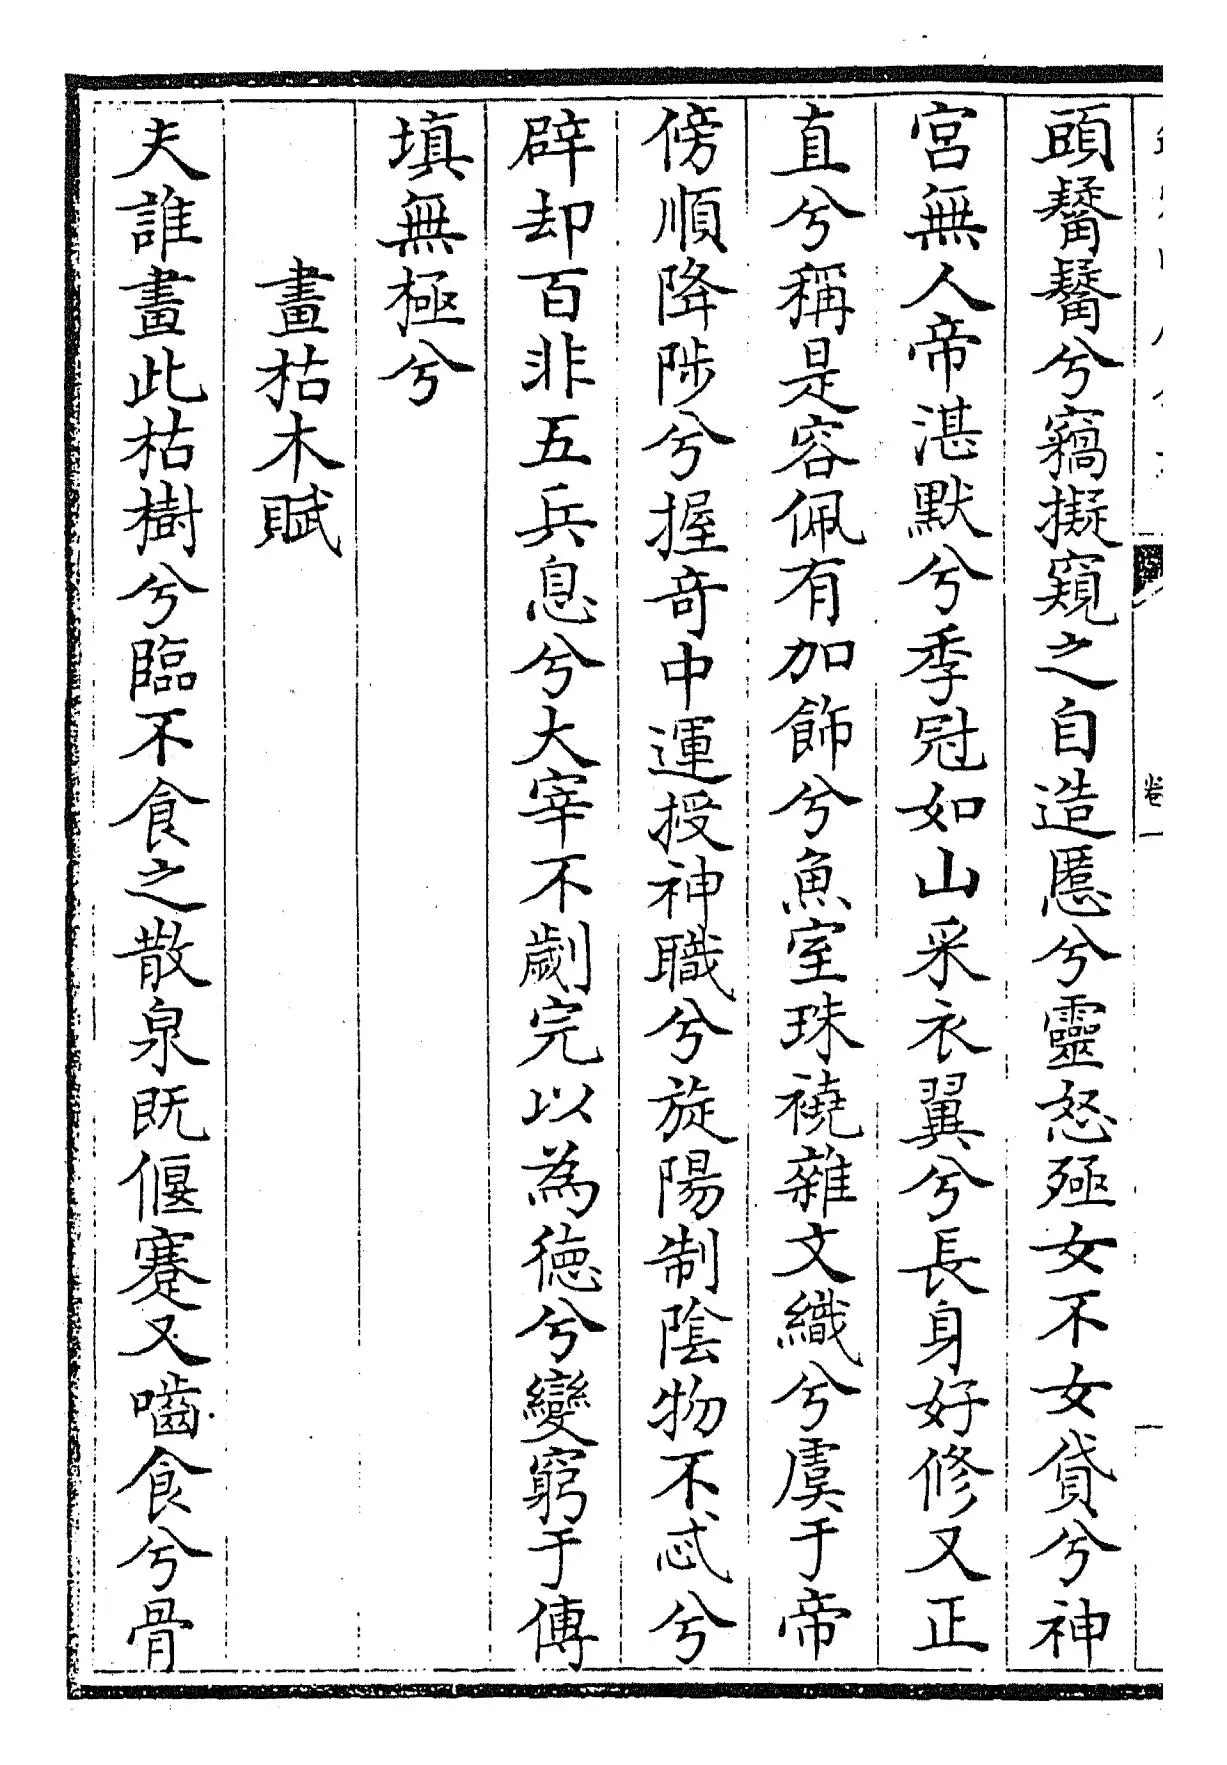 頭觺觺兮竊擬窺之自造慝兮靈怒殛女不女貸兮神
宮無人帝湛默兮季冠如山采衣翼兮長身好修又正
直兮稱是容佩有加飾兮魚室珠襓雜文織兮虞于帝
傍順降陟兮握奇中運授神職兮旋陽制陰物不忒兮
辟却百非五兵息兮大宰不劌完以為德兮變窮于傳
填無極兮
畫枯木賦
夫誰畫此枯樹兮臨不食之散泉既偃蹇又嚙食兮骨
卷一